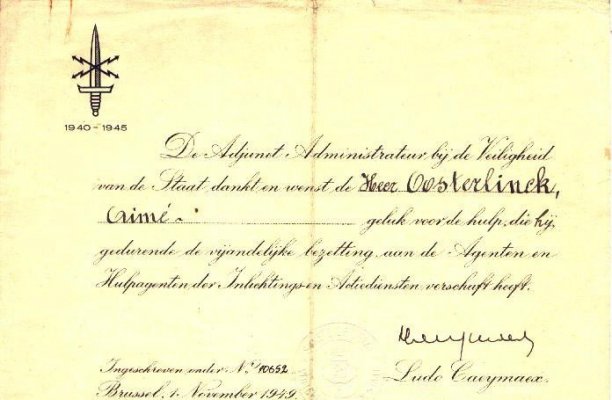 1940-1945
De Adjunct Administrateur bij de Veiligheid
van de Staat dankt en wenst de Heer Oosterlinck,
Aimé geluk voor de hulp, die hij,
gedurende de vijandelijke bezetting aan de Agenten en
Hulpagenten der Inlichtings-en Actiediensten verschaft heeft.
Ingeschreven onder Nr. 10652
Ludo Caeymaex.
Brussel, 1 November 1949.